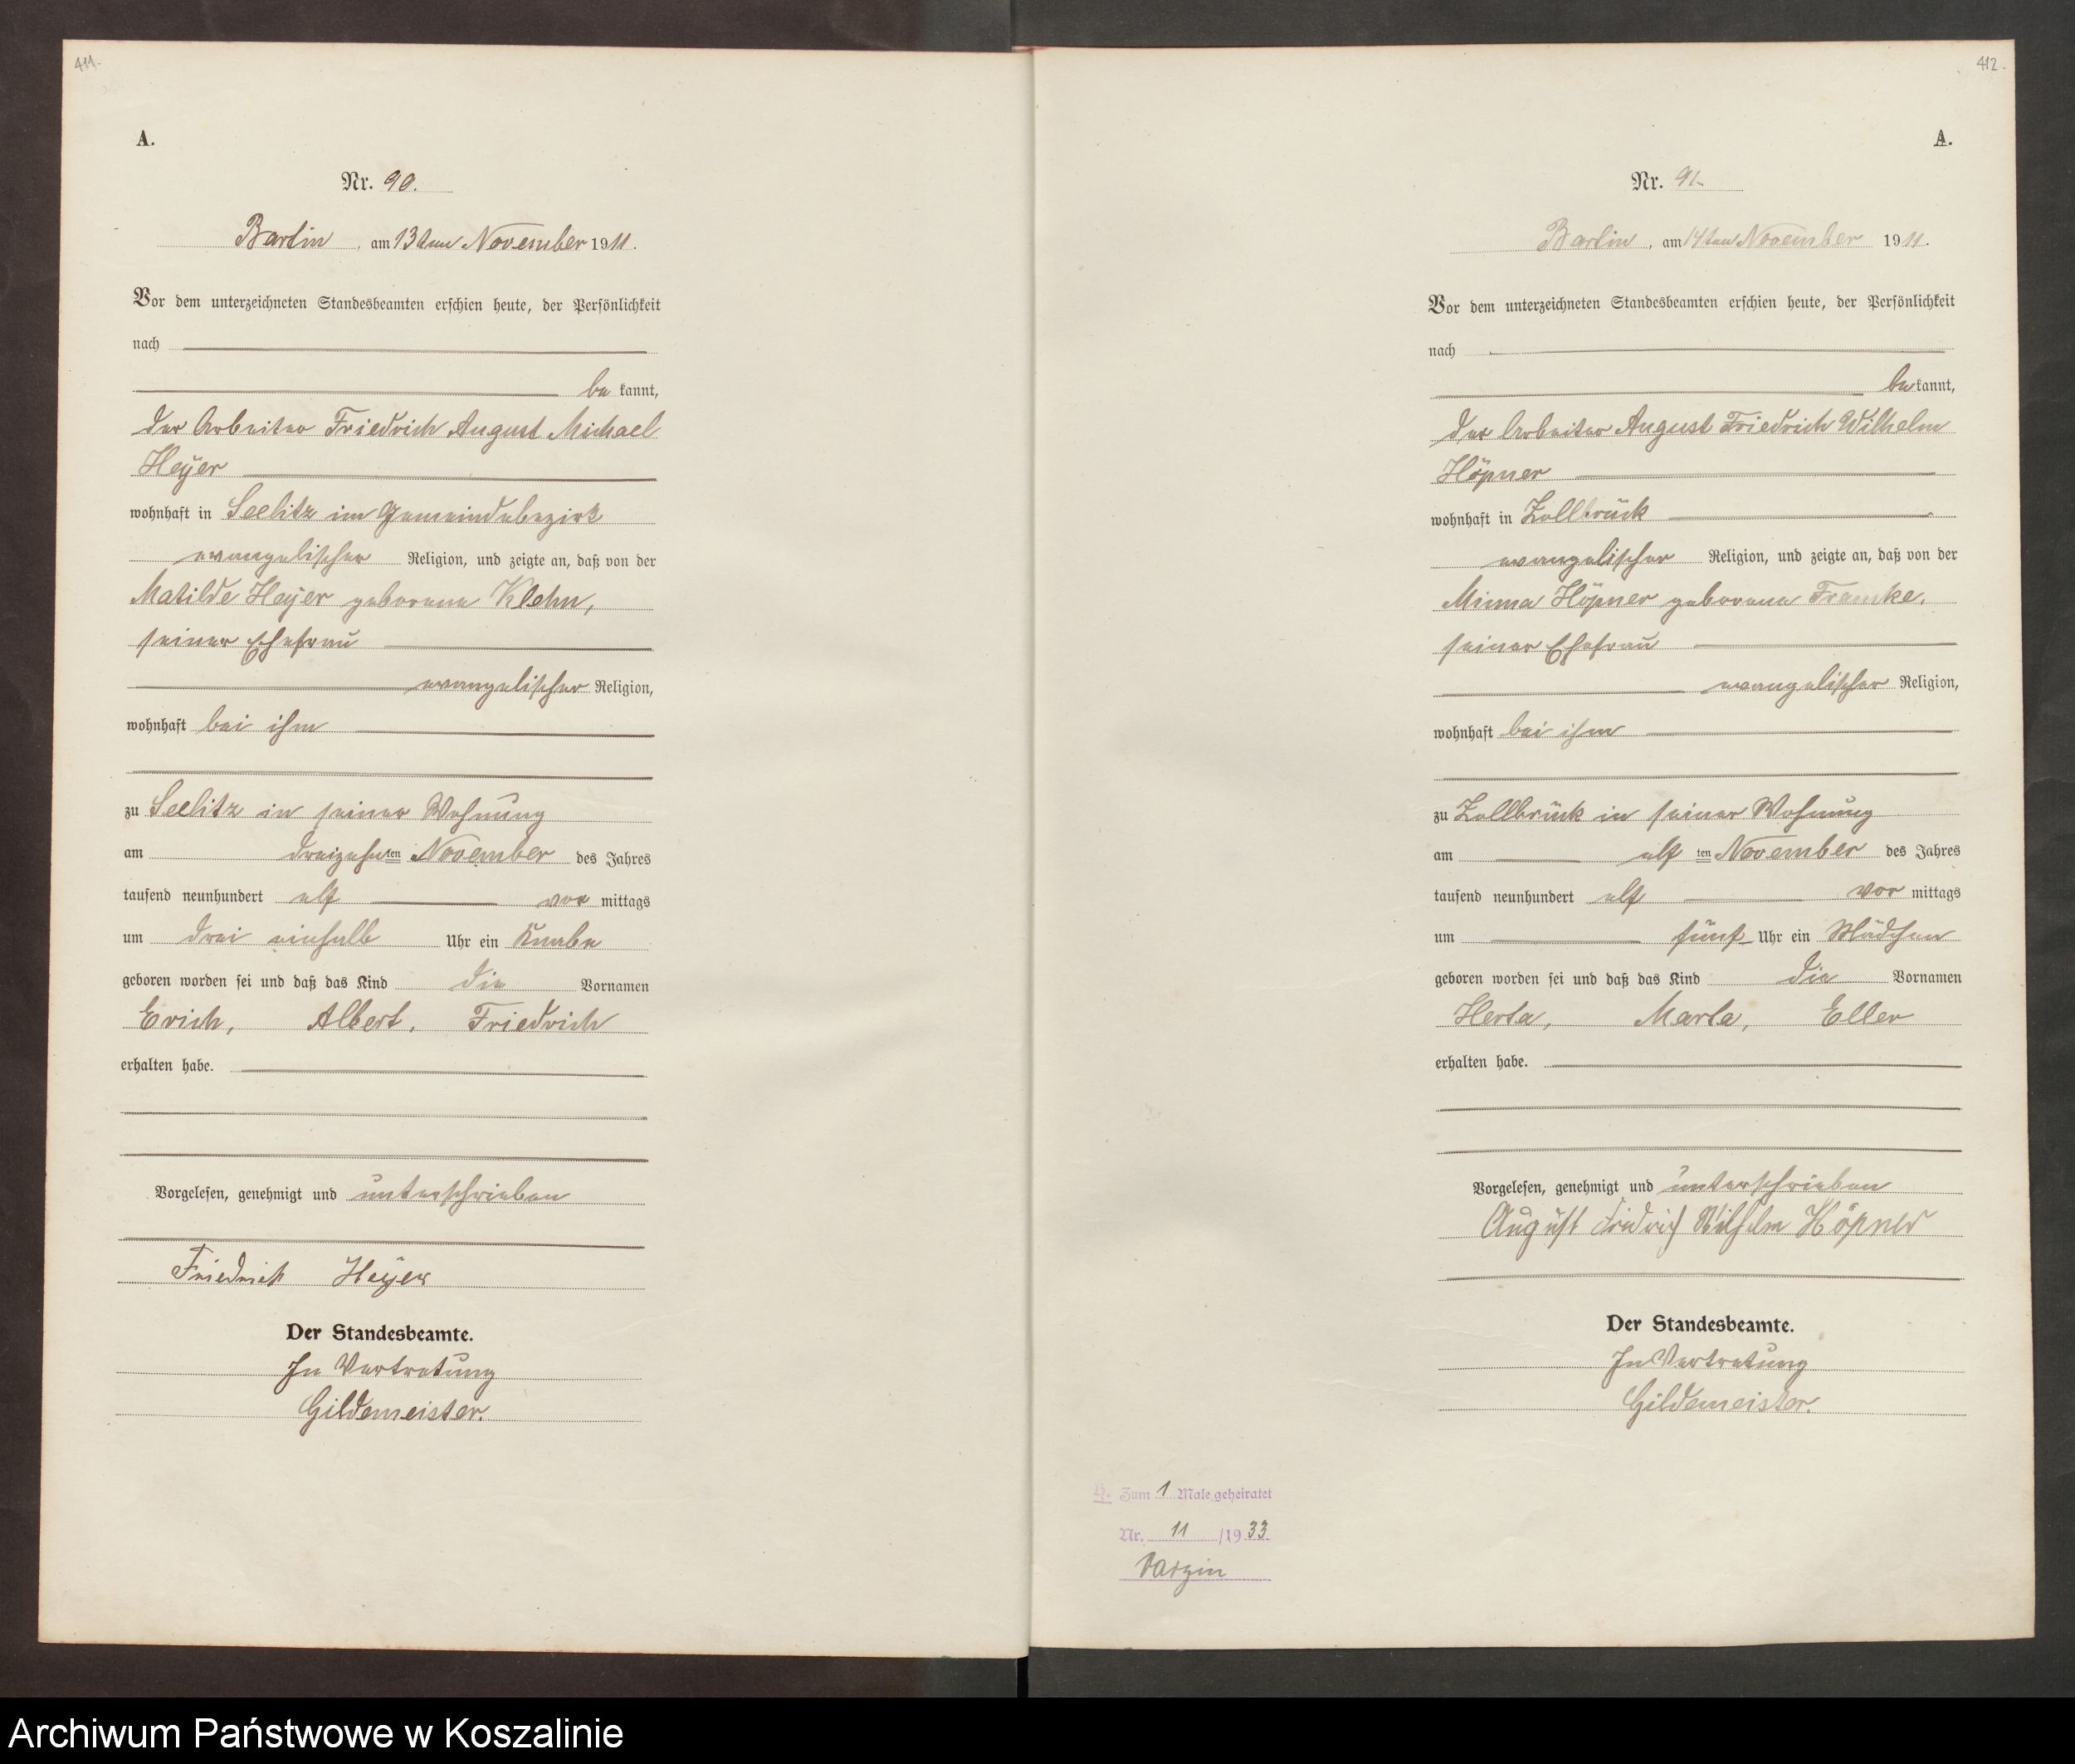 411.
A.
Nr. 90.
Bartin, am 13ten November 1911.
Vor dem unterzeichneten Standesbeamten erschien heute, der Persönlichkeit
nach
bekannt,
der Arbeiter Friedrich August Michael
Heyer
wohnhaft in Seelitz im Gemeindebezirk
evangelischer Religion, und zeigte an, daß von der
Matilde Heyer geborene Klehn,
seiner Ehefrau
evangelischer Religion,
wohnhaft bei ihm
zu Seelitz in seiner Wohnung
am dreizehnten November des Jahres
tausend neunhundert elf vormittags
um drei einhalb Uhr ein Knabe
geboren worden sei und daß das Kind die Vornamen
Erich, Albert, Friedrich
erhalten habe.
Vorgelesen, genehmigt und unterschrieben
Friedrich Heyer
Der Standesbeamte.
In Vertretung
Gildemeister.
412.
A.
Nr. 91.
Bartin, am 14ten November 1911.
Vor dem unterzeichneten Standesbeamten erschien heute, der Persönlichkeit
nach
bekannt,
der Arbeiter August Friedrich Wilhelm
Höpner
wohnhaft in Zollbrück
evangelischer Religion, und zeigte an, daß von der
Minna Höpner geborene Framke,
seiner Ehefrau
evangelischer Religion,
wohnhaft bei ihm
zu Zollbrück in seiner Wohnung
am elften November des Jahres
tausend neunhundert elf vormittags
um fünf Uhr ein Mädchen
geboren worden sei und daß das Kind die Vornamen
Herta, Marta, Eller
erhalten habe.
Vorgelesen, genehmigt und unterschrieben
August Fridrich Wilhelm Höpner
Der Standesbeamte.
In Vertretung
Gildemeister.
Zum 1 Male geheiratet
Nr. 11 /1933
Varzin
Archiwum Państwowe w Koszalinie